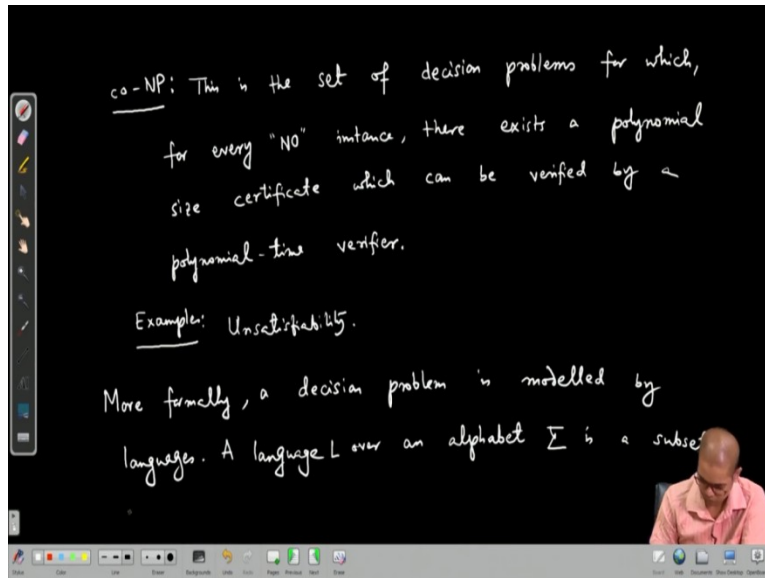 co-NP: This is the set of decision problems for which,
for every "NO" instance, there exists a polynomial
size certificate which can be verified by a
polynomial-time verifier.
Examples: Unsatisfiability.
More formally, a decision problem is modelled by
languages. A language L over an alphabet Σ is a subse